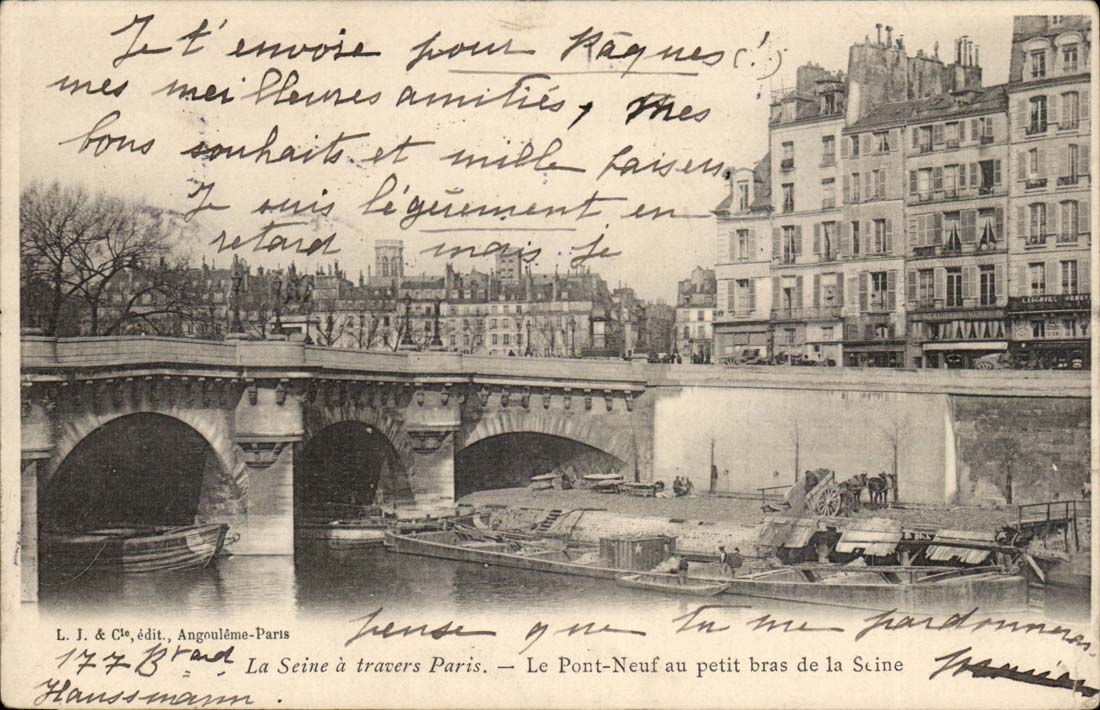 Je t'envoie pour Pâques (!)
mes meilleures amitiés, mes
bons souhaits et mille baisers
Je suis légèrement en
retard mais je
pense que tu me pardonneras
L. J. & Cie, édit., Angoulême-Paris
La Seine à travers Paris. — Le Pont-Neuf au petit bras de la Seine
177 Bvard
Haussmann.